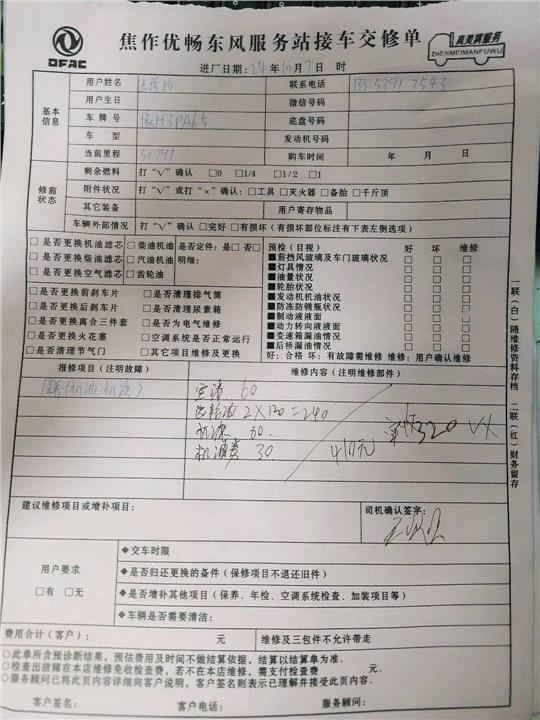 DFAC
焦作优畅东风服务站接车交修单
真美满服务
ZHENMEIMANFUWU
进厂日期：24年10月7日 时
基本信息
用户姓名 联系电话 133 5391 7543
用户生日 微信号码
车牌号 豫H3PA65 底盘号码
车型 发动机号码
当前里程 50791 购车时间 年 月 日
修前状态
剩余燃料 打“√”确认 □0 □1/4 □1/2 □1
附件状况 打“√”或打“×”确认：□工具 □灭火器 □备胎 □千斤顶
其它装备 用户寄存物品
车辆外部情况 打“√”确认 □完好 □有损坏（有损坏部位标注有下表左侧选项）
□是否更换机油滤芯 □柴油机油 是否定件：是□ 否□
□是否更换柴油滤芯 □汽油机油 明细：
□是否更换空气滤芯 □齿轮油
□是否更换前刹车片 □是否清理排气筒
□是否更换后刹车片 □是否清理尿素箱
□是否更换离合三件套 □是否为电气维修
□是否更换火花塞 □空调系统是否正常运行
□是否清理节气门 □其它项目维修及更换
预检（目视） 好 坏 维修
■前挡风玻璃及车门玻璃状况 □ □ □
■灯具情况 □ □ □
■油量状况 □ □ □
■轮胎状况 □ □ □
■发动机机油状况 □ □ □
■防冻防锈瓶状况 □ □ □
■制动液液面 □ □ □
■动力转向液液面 □ □ □
■变速箱漏油情况 □ □ □
■后桥漏油情况 □ □ □
好：合格 坏：有故障需维修 维修：用户确认维修
报修项目（注明故障） 维修内容（注明维修部件）
机油 机滤）
空滤 60
齿轮油 2×120=240
机滤 80.
机油类 30 410元
320
建议维修项目或增补项目：
司机确认签字：
用户要求
□有 □无
◆交车时限
◆是否归还更换的备件（保修项目不退还旧件）
◆是否增补其他项目（保养、年检、空调系统检查、加装项目等）
◆车辆是否需要清洁：
费用合计（客户）： 元 维修及三包件不允许带走
○此单所含预诊断结果，预估费用及时间不做结算依据，结算以结算单为准。
○检查出故障在本店维修免收检查费，若不在本店维修，需支付检查费 元。
○服务顾问已将此页内容详细向客户说明，客户签名则表示已理解并接受此页内容。
客户签名： 客户电话： 服务顾问：
一联（白）随维修资料存档 二联（红）财务留存